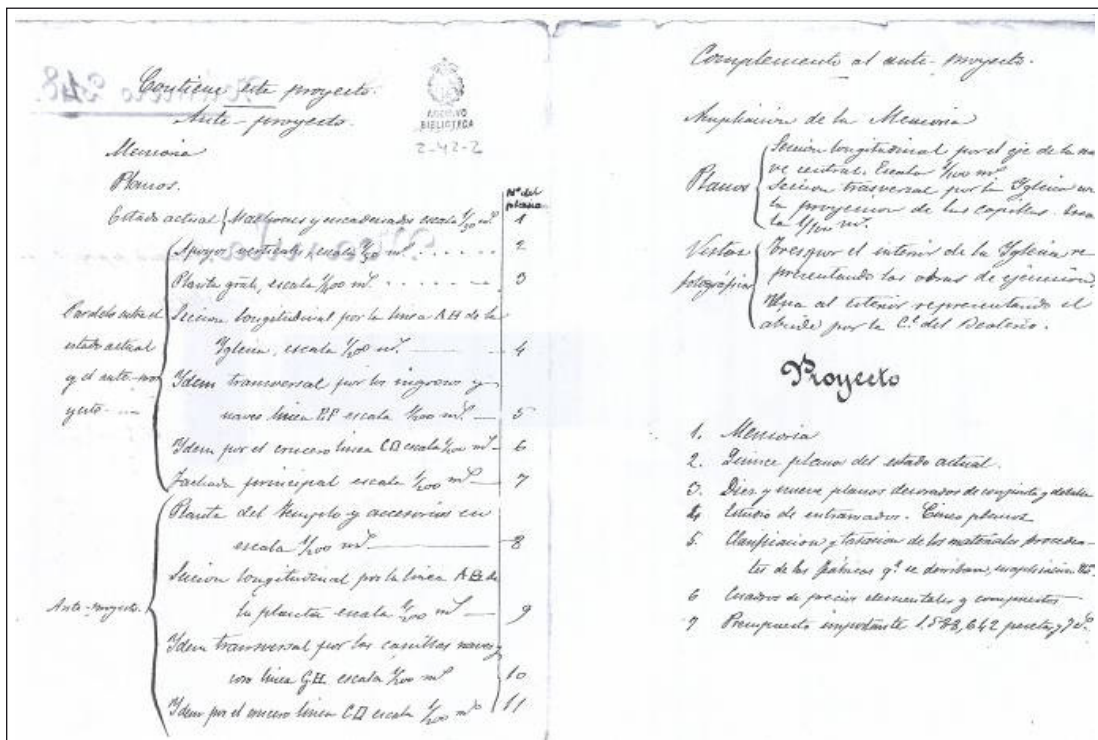 Contiene este proyecto.
Ante-proyecto.
ARCHIVO
BIBLIOTECA
2-42-2
Memoria
Planos.
Nº del
plano
Estado actual { Machones y encadenados escala 1/50 mᔆ. 1
Apoyos verticales, escala 1/50 mᔆ. 2
Planta gral, escala 1/100 mᔆ. 3
Paralelo entre el
estado actual
y el ante-pro
yecto
Seccion longitudinal por la linea AB de la
Iglesia, escala 1/200 mᔆ. 4
Idem transversal por los ingresos y
naves linea EF escala 1/200 mᔆ. 5
Idem por el crucero linea CD escala 1/200 mᔆ 6
Fachada principal escala 1/200 mᔆ 7
Ante-proyecto.
Planta del Templo y accesorios en
escala 1/200 mᔆ 8
Seccion longitudinal por la linea AB de
la planta escala 1/200 mᔆ 9
Idem transversal por las capillas naves y
coro linea GH escala 1/200 mᔆ 10
Idem por el crucero linea CD escala 1/200 mᔆ 11
Complemento al ante-proyecto.
Ampliacion de la Memoria
Planos
Seccion longitudinal por el eje de la na
ve central. Escala 1/100 mᔆ
Seccion trasversal por la Iglesia con
la proyeccion de las capillas. Esca
la 1/100 mᔆ.
Vistas
fotográficas
Tres por el interior de la Iglesia re-
presentando las obras de ejecucion,
Una al exterior representando el
abside por la C.ᵉ del Beaterio.
Proyecto
1. Memoria
2. Quince planos del estado actual.
3. Diez y nueve planos decorados de conjunto y detalle
4. Estudio de entramados. Cinco planos
5. Clasificacion y tasacion de los materiales proceden-
tes de las fábricas q.ᵉ se derriban,
6 Cuadros de precios elementales y compuestos
7 Presupuesto importante 1.588,642 pesetas